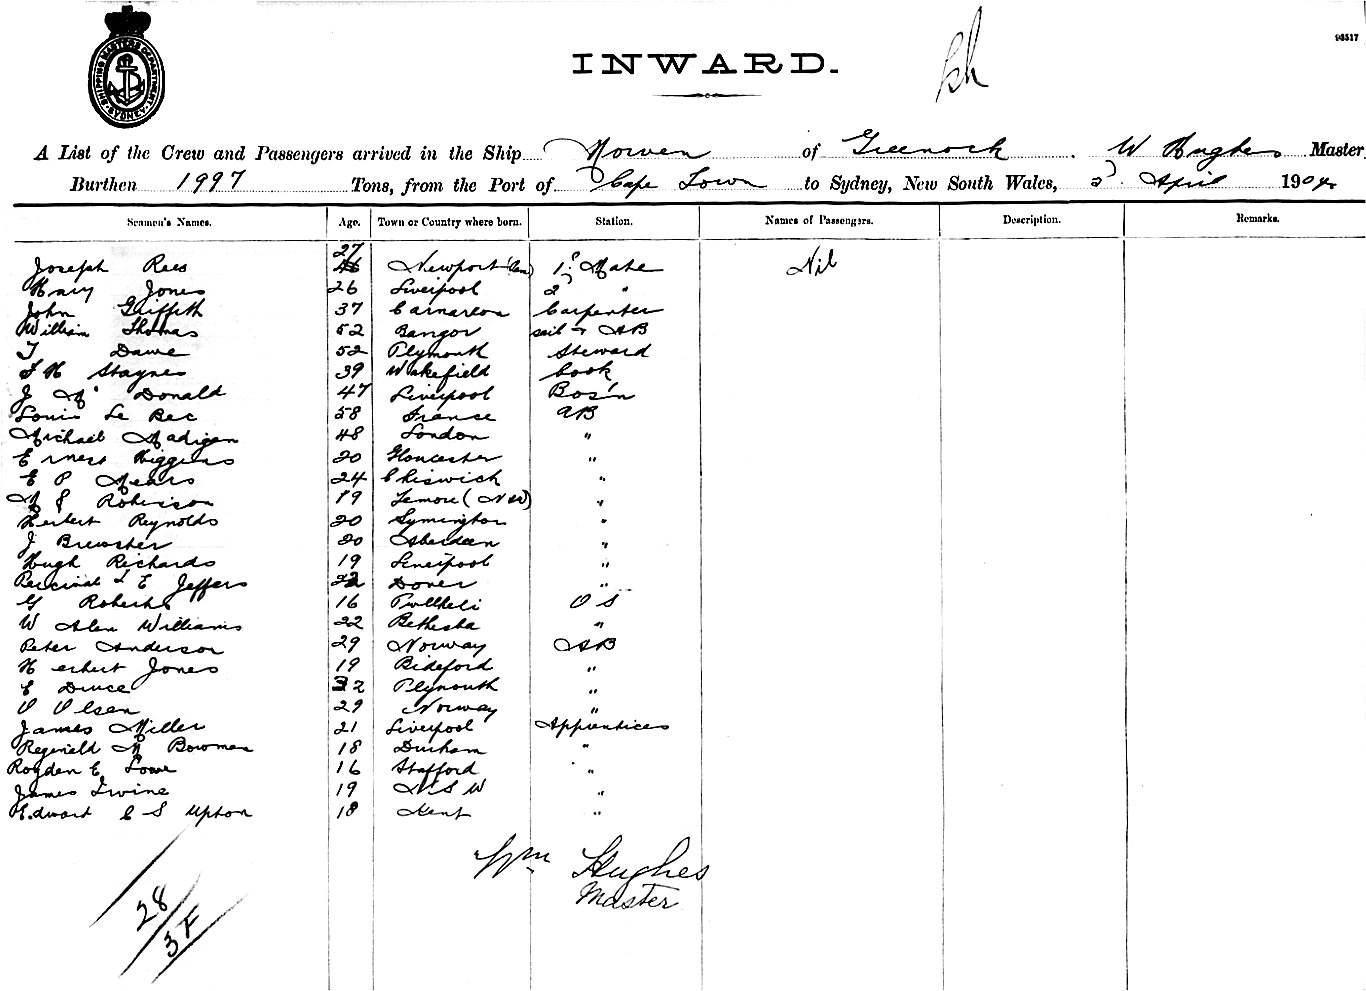 SHIPPING MASTERS DEPARTMENT SYDNEY
93517
INWARD.
A List of the Crew and Passengers arrived in the Ship Norven of Greenock W Hughes Master
Burthen 1997 Tons, from the Port of Cape Town to Sydney, New South Wales, 2 April 1904
Seamen's Names. Age. Town or Country where born. Station. Names of Passengers. Description. Remarks.
27
Joseph Rees 46 Newport 1s Mate Nil
Harry Jones 26 Liverpool 2 "
John Griffith 37 Carnarvon Carpenter
William Thomas 52 Bangor sail r AB
T Dawe 52 Plymouth Steward
F H Staynes 39 Wakefield Cook
J Mc Donald 47 Liverpool Bos'n
Louis Le Bec 58 France AB
Michael Madigan 48 London "
Ernest Higgens 20 Gloucester "
E P Mears 24 Chiswick "
M Robinson 19 (NSW) "
Herbert Reynolds 20 Lymington "
J Brewster 20 Aberdeen "
Hugh Richards 19 Liverpool "
Percival L E Jeffers 22 Dover "
G Roberts 16 Pwllheli O S
W Alen Williams 22 Bethesda "
Peter Anderson 29 Norway AB
Herbert Jones 19 Bideford "
E Druce 32 Plymouth "
O Olsen 29 Norway "
James Miller 21 Liverpool Apprentices
Reginald M Bowman 18 Durham "
Royden E Lowe 16 Stafford "
James Irvine 19 N S W "
Edward C S Upton 18 Kent "
Wm Hughes
Master
28
3F